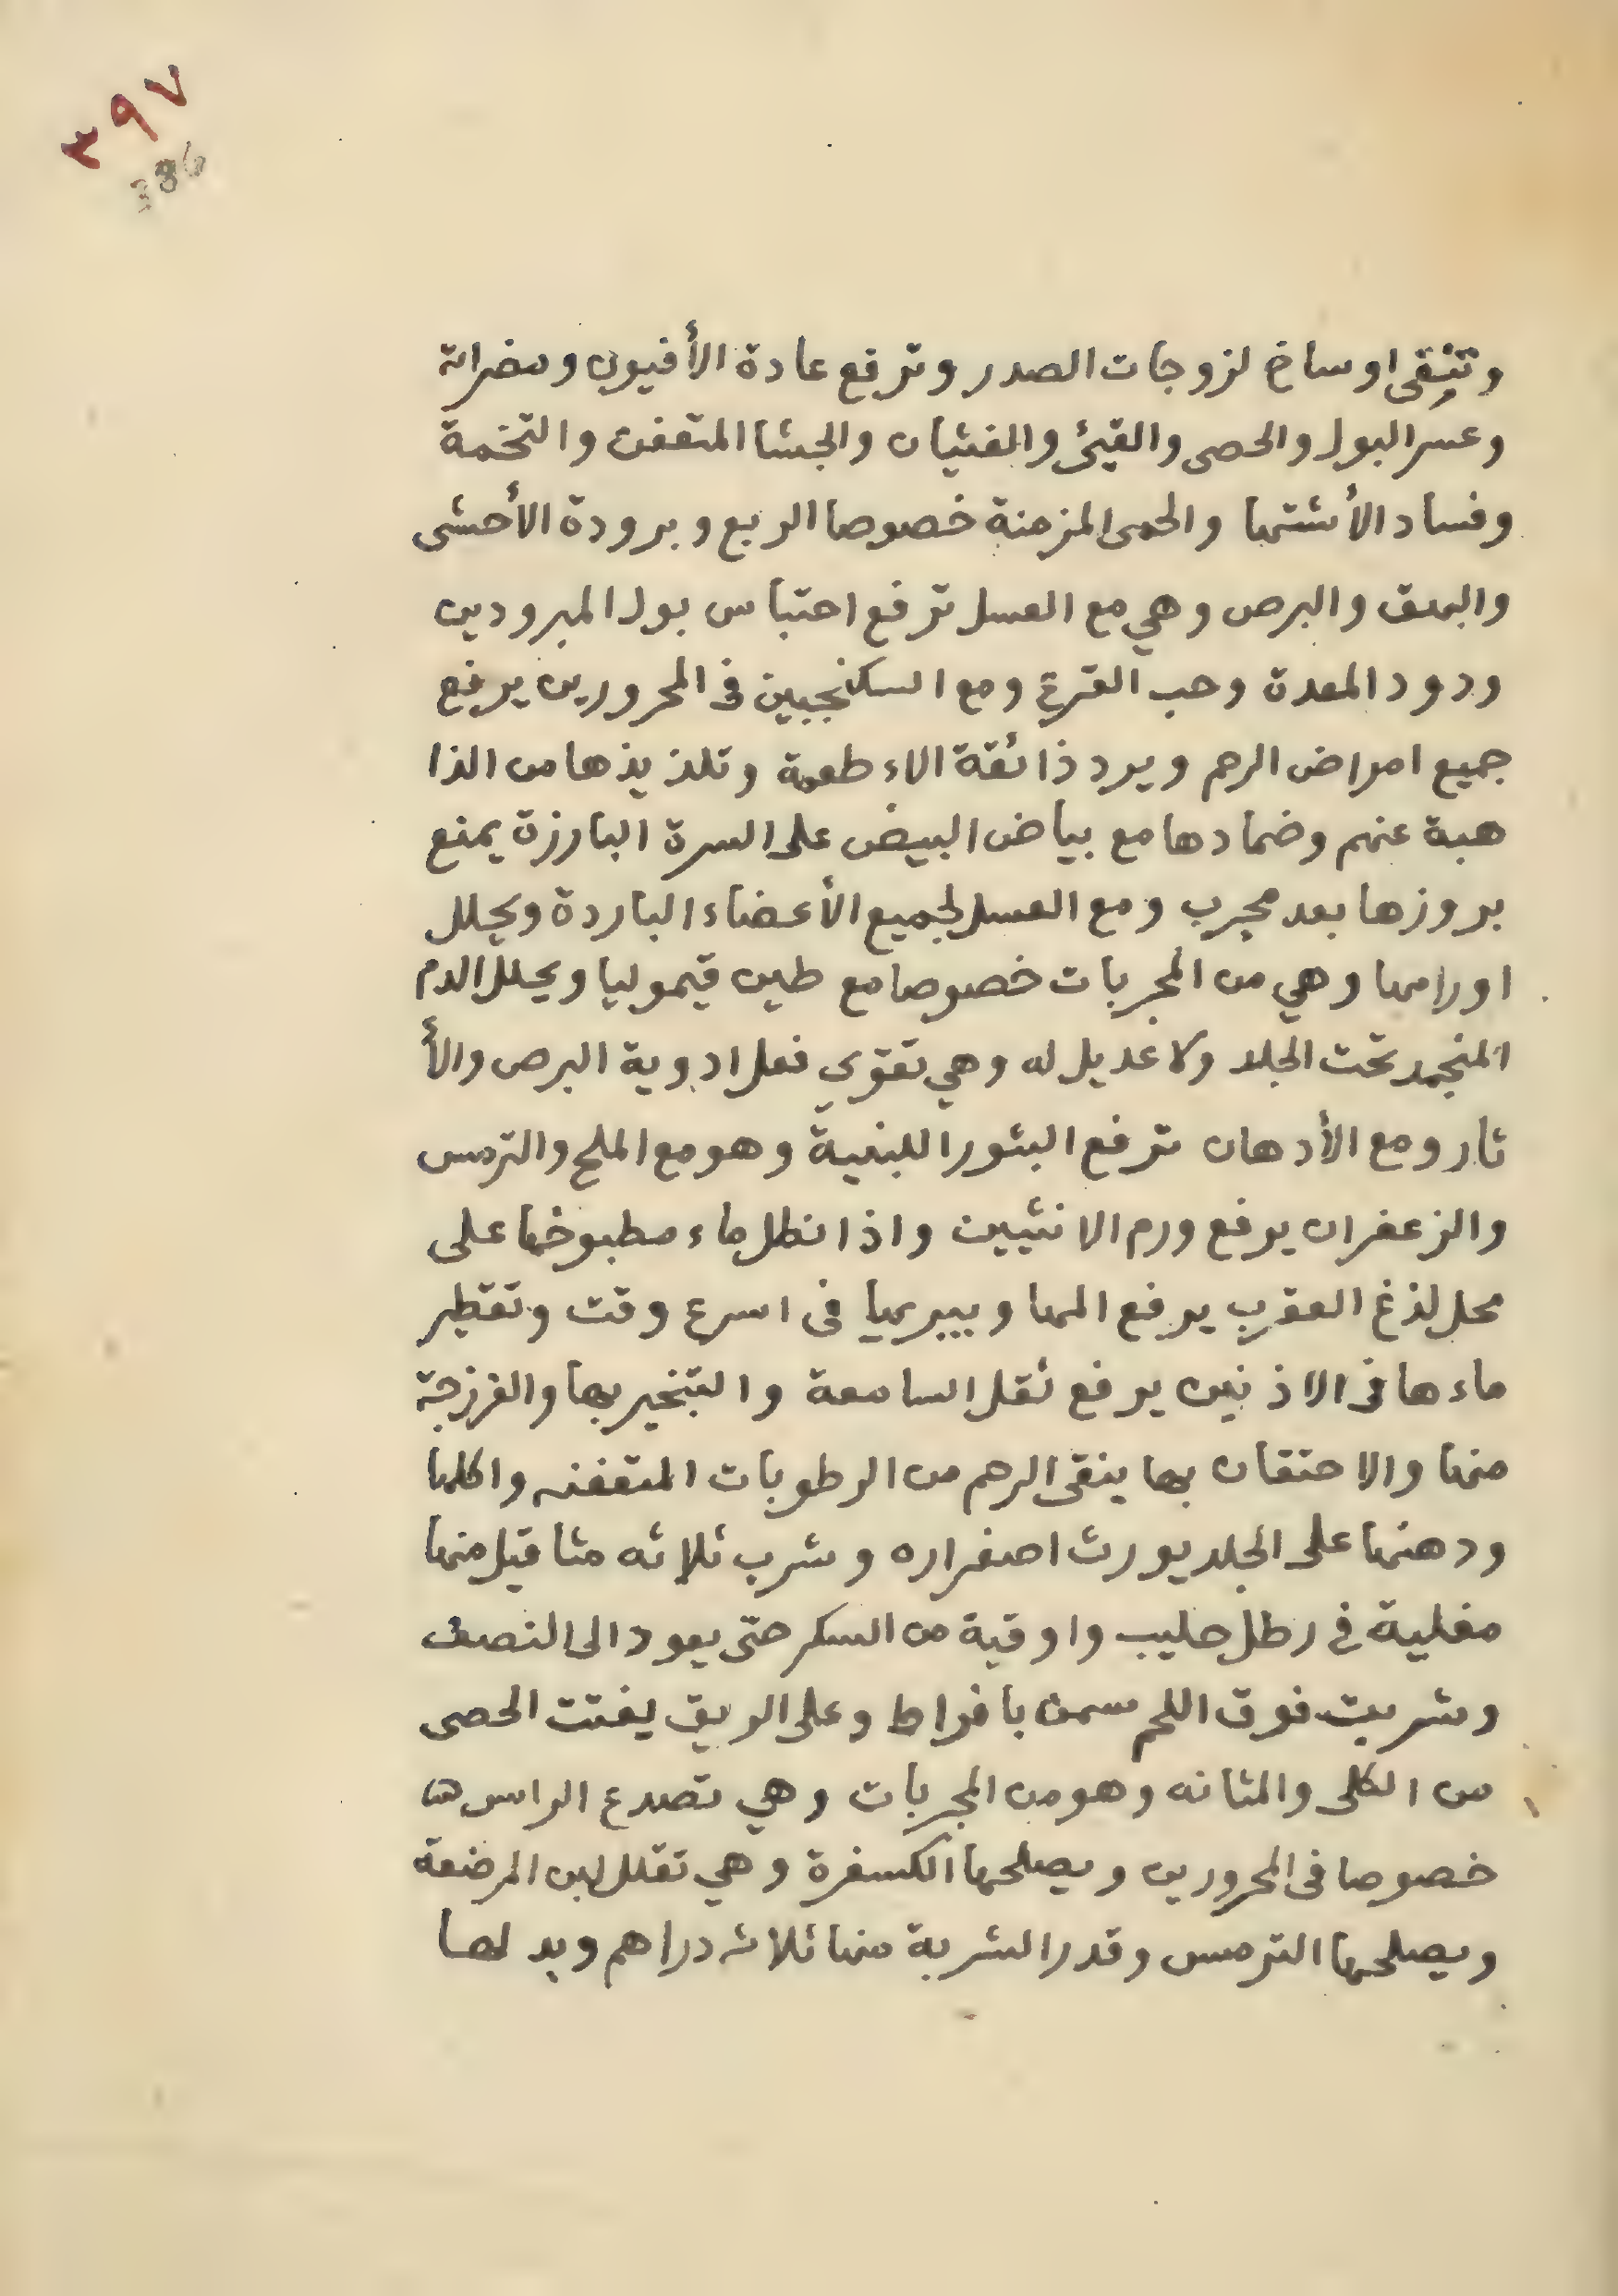 ٣٩٧
386
وتنقى اوساخ لزوجات الصدر وترفع عادة الأفيون ومضراته
وعسر البول والحصى والقيئ والغثيان والجشا المتعفن والتخمة
وفساد الأشتها والحمى المزمنة خصوصا الربع وبرودة الأحشى
والبهق والبرص وهي مع العسل ترفع احتباس بول المبرودين
ودود المعدة وحب القرع ومع السكنجبين فى المحرورين يرفع
جميع امراض الرحم ويرد ذائقة الاءطعمة وتلذيذها من الذا
هبة عنهم وضمادها مع بياض البيض على السرة البارزة يمنع
بروزها بعد مجرب ومع العسل لجميع الأعضاء الباردة ويحلل
اورامها وهي من المجربات خصوصا مع طين قيموليا ويحلل الدم
المنجمد تحت الجلد ولا عديل له وهي تقوي فعل ادوية البرص والأ
ثار ومع الأدهان ترفع البثور اللبنية وهو مع الملح والترمس
والزعفران يرفع ورم الانثيين واذا نطل ماء مطبوخها على
محل لذغ العقرب يرفع المها ويبريها فى اسرع وقت وتقطير
ماءها فى الاذنين يرفع ثقل السامعة والتبخير بها والفرزجة
منها والاحتقان بها ينقى الرحم من الرطوبات المتعفنه واكلها
ودهنها على الجلد يورث اصفراره وشرب ثلاثه مثاقيل منها
مغلية في رطل حليب واوقية من السكر حتى يعود الى النصف
وشربت فوق اللحم سمن بافراط وعلى الريق يفتت الحصى
من الكلى والمثانه وهو من المجربات وهي تصدع الراس
خصوصا فى المحرورين ويصلحها الكسفرة وهي تقلل لبن المرضعة
ويصلحها الترمس وقدر الشربة منها ثلاث دراهم وبدلها